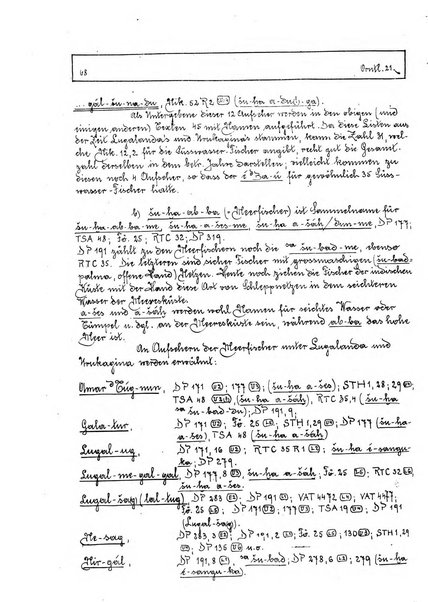 68 Orntl. 21.
...gál-šu-na-du, Nik. 52 R 2 (šu-ha a-du(g)-ga).
Als Untergebene dieser 12 Aufseher werden in den obigen (und
einigen anderen) Texten 45 mit Namen aufgeführt. Da diese Listen aus
der Zeit Lugalanda's und Urukagina's stammen, kann die Zahl 31, wel-
che Nik. 12,2 für die Süsswasser-Fischer angibt, recht gut die Gesamt-
zahl derselben in dem betr. Jahre darstellen; vielleicht kommen zu
diesen noch 4 Aufseher, so dass der é ᵈBa-ú für gewöhnlich 35 Süss-
wasser-Fischer hatte.
b) šu-ha-ab-ba (= Meerfischer) ist Sammelname für
šu-ha-ab-ba-me, šu-ha-a-šes-me, šu-ha-a-šáh / dun-me, DP 177;
TSA 48; Fö. 25; RTC 32; DP 119
DP 191 zählt zu den Meerfischern noch die ˢᵃ šu-bad-me, ebenso
RTC 35. Die letzteren sind sicher Fischer mit grossmaschigen (šu-bad-
palma, offene Hand) Netzen. Heute noch ziehen die Fischer der indischen
Küste mit der Hand diese Art von Schleppnetzen in dem seichteren
Wasser der Meeresküste.
a-šes und a-šáh werden wohl Namen für seichtes Wasser oder
Tümpel u. dgl. an der Meeresküste sein, während ab-ba das hohe
Meer ist.
An Aufsehern der Meerfischer unter Lugalanda und
Urukagina werden erwähnt:
DP 171; 177; (šu-ha a-šes); STH 1, 28; 29
TSA 48 (šu-ha a-šáh), RTC 35,4 (šu-ha
ˢᵃ šu-bad-du); DP 191,9;
Gala-tur, DP 171; Fö. 25; STH 1,29; DP 177 (šu-ha
a-šes), TSA 48 (šu-ha a-šáh)
Lugal-ug, DP 171, 16; RTC 35 R 1; šu-ha é-sangu-
ka, DP 279.
Lugal-me-gal-gal, DP 177,8, šu-ha a-šáh; Fö. 25; RTC 32
šu-ha a-šes.
Lugal-šag(lal-tug), DP 283; DP 191; VAT 4472; VAT 4477;
Fö. 25; DP 171; DP 177; TSA 19; DP 191
(Lugal-šag).
Ne-sag, DP 283,3; DP 191; Fö. 25; 130; STH 1,29
DP 136 u.o.
Nir-gál, DP 191,8, ˢᵃ šu-bad; DP 278,6; 279 (šu-ha
é-sangu-ka).